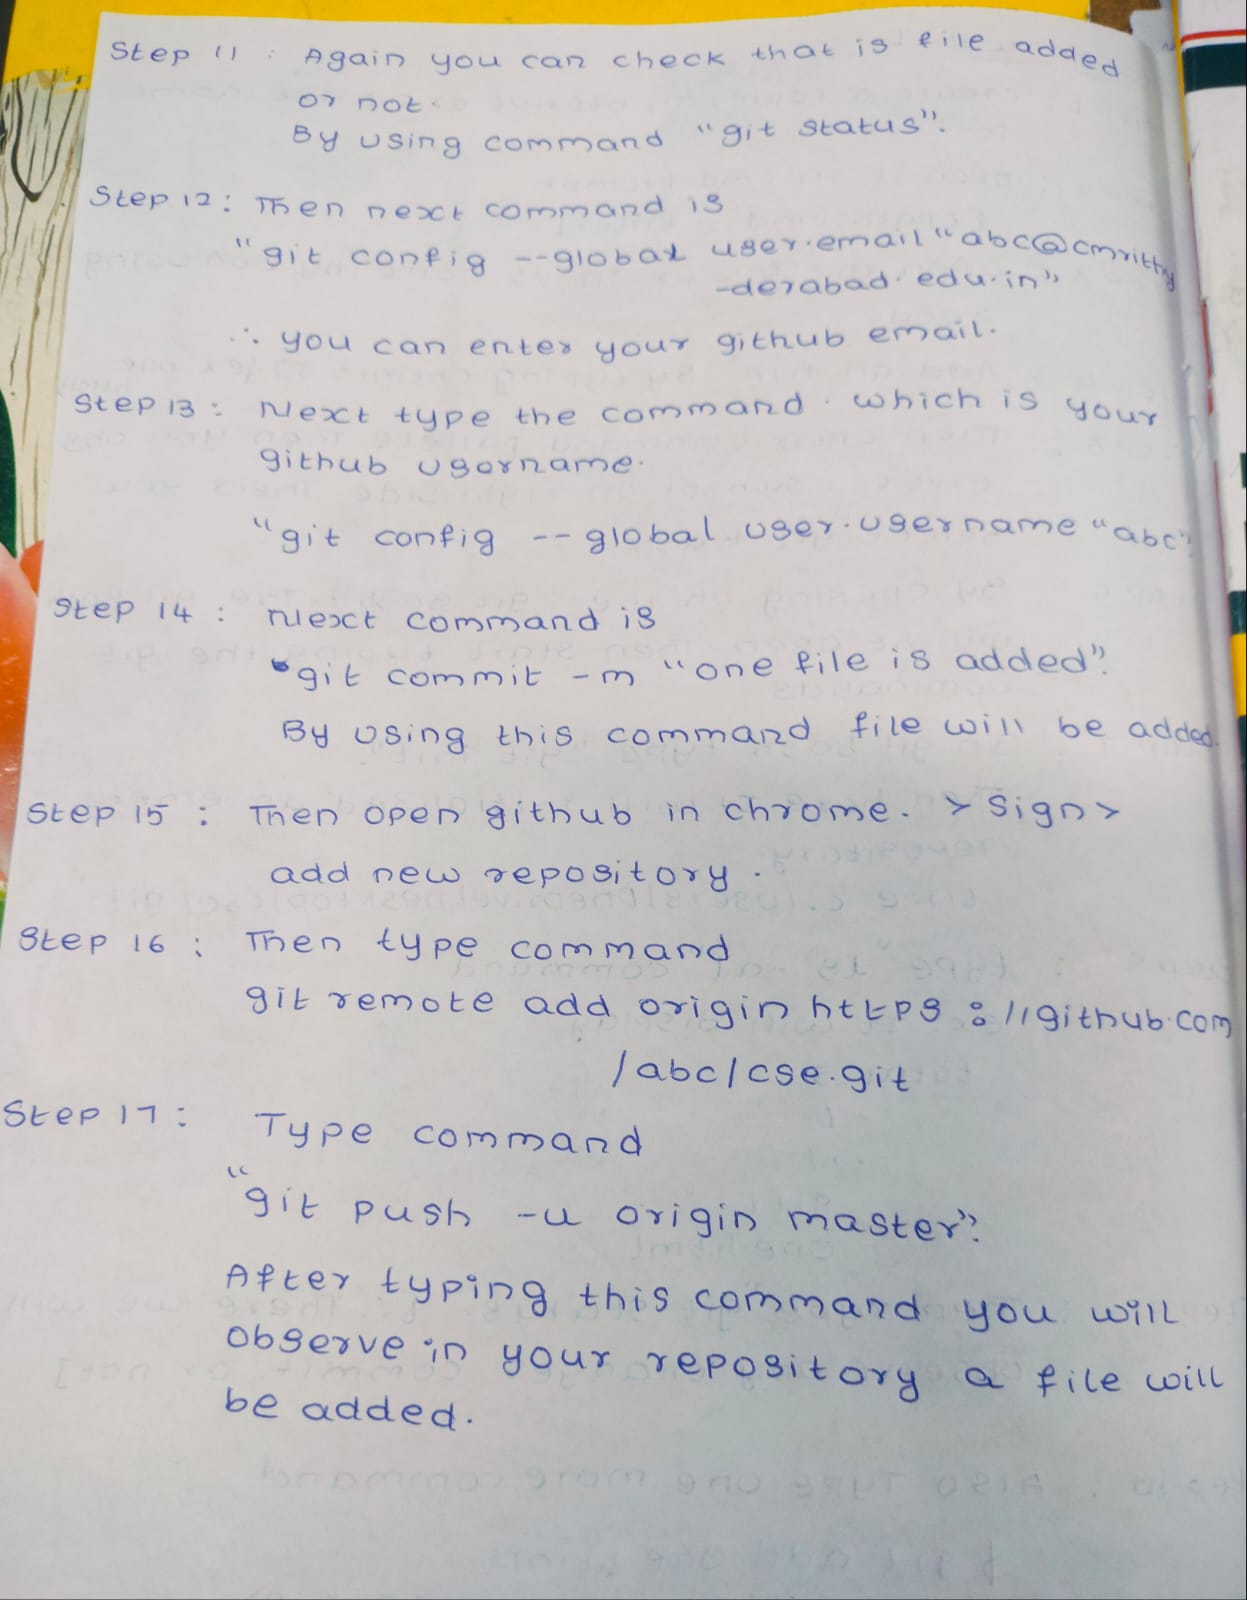 Step 11 : Again you can check that is file added
or not.
By using command "git status".
Step 12 : Then next command is
"git config --global user.email "abc@cmrithy
-derabad.edu.in"
∴ you can enter your github email.
Step 13 : Next type the command. which is your
github username.
"git config --global user.username "abc".
Step 14 : Next command is
"git commit -m "one file is added".
By using this command file will be added.
Step 15 : Then open github in chrome. > Sign >
add new repository.
Step 16 : Then type command
git remote add origin https://github.com
/abc/cse.git
Step 17 : Type command
"git push -u origin master".
After typing this command you will
observe in your repository a file will
be added.